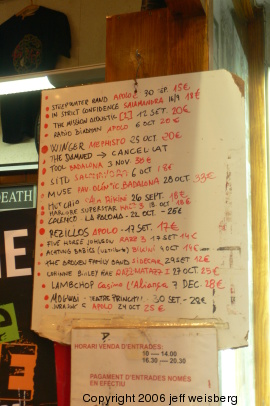 STEEPWATER BAND APOLO 30 SEP. 15€
IN STRICT CONFIDENCE SALAMANDRA 16/9 18€
THE MISSION ACOUSTIC [2] 12 SET. 20€
RADIO BIRDMAN APOLO 6 OCT 20€
WINGER MEPHISTO 25 OCT. 20€
THE DAMNED → CANCEL·LAT
TOOL BADALONA 3 NOV 30€
SITD SALAMANDRA 6 OCT 18€
MUSE PAV OLÍMPIC BADALONA 28 OCT 33€
BIKINI 26 SEPT. 18€
SUPERSTAR 18 OCT 18€
LA PALOMA - 22 OCT. - 25€
REBILLOS APOLO - 17 SET. - 17€
FIVE HORSE JOHNSON 17 SET 14€
ACHTUNG BABIES BIKINI 4 OCT 14€
THE BROKEN FAMILY BAND SIDECAR 29 SET 12€
CORINNE BAILEY RAE RAZZMATAZZ 1 27 OCT 25€
LAMBCHOP Casino L'Aliança 7 DEC. 28€
MOGWAI - TEATRE PRINCIPAL 30 SET - 22€
APOLO 24 OCT 25€
HORARI VENDA D'ENTRADES:
10 — 14.00
16.30 — 20.30
PAGAMENT D'ENTRADES NOMÉS
EN EFECTIU
DEATH
Copyright 2006 jeff weisberg